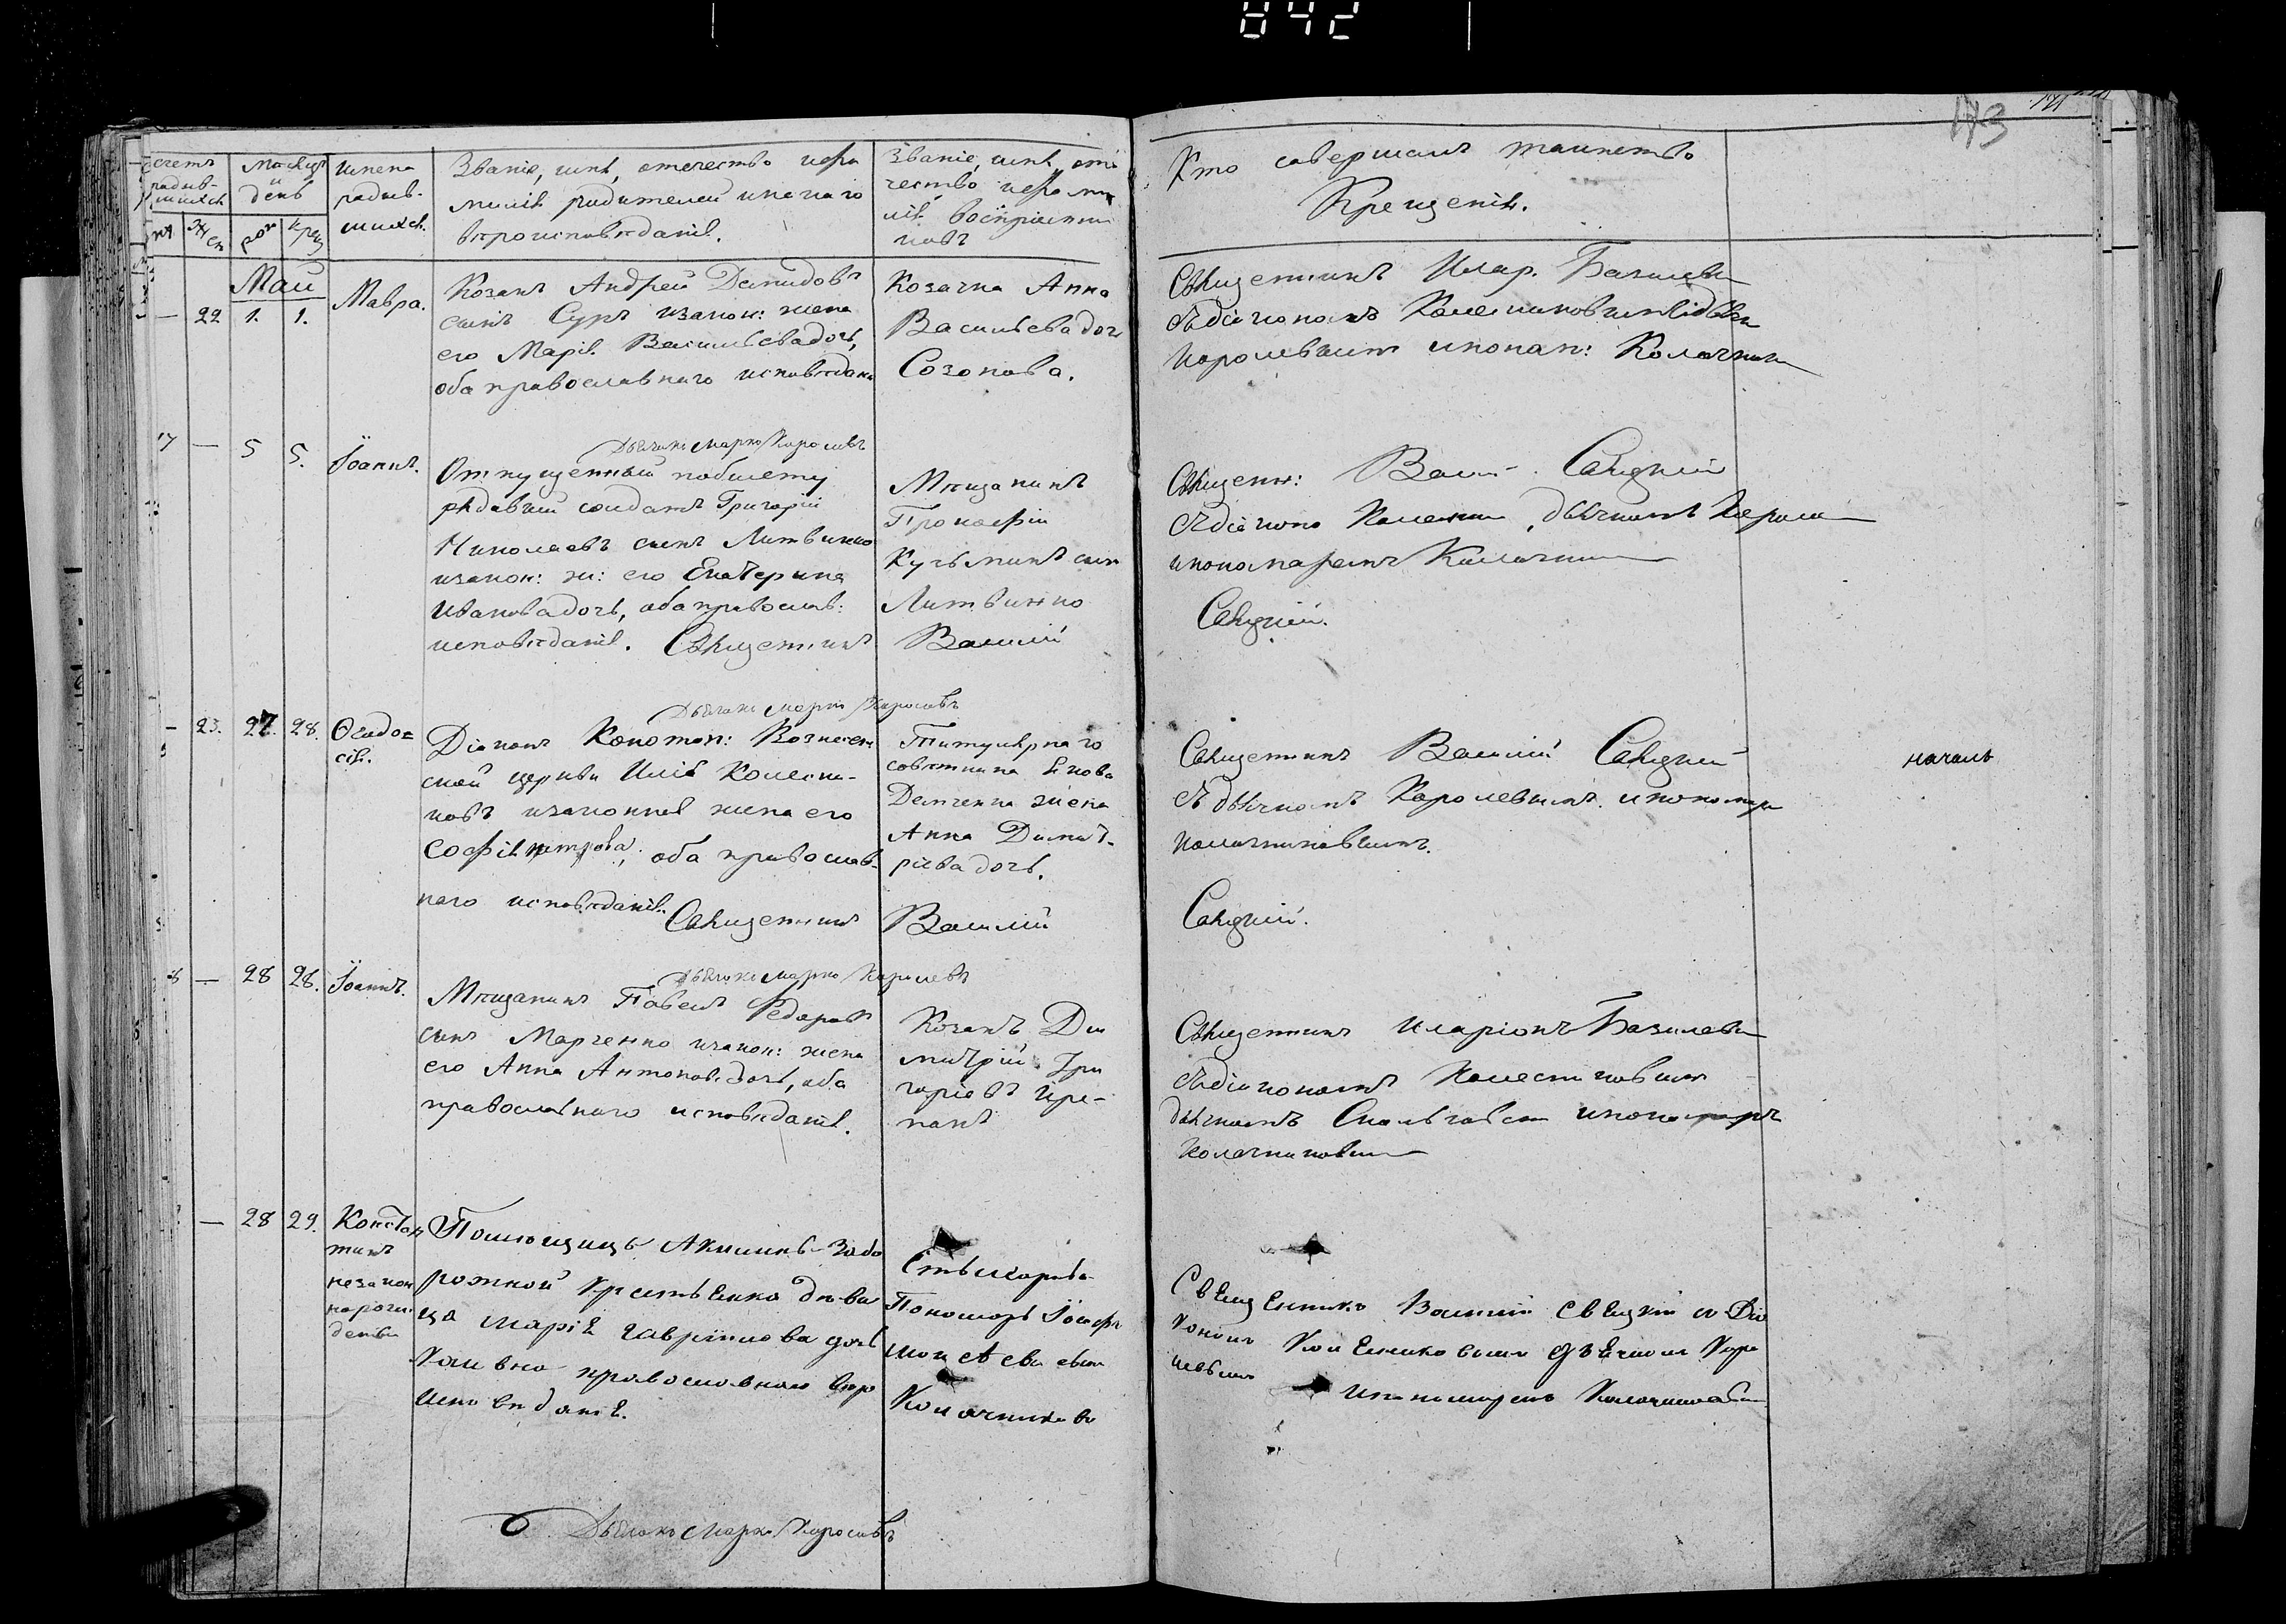 042
173
Счетъ родив-шихся
Месяцъ и день
Имена родив-шихся.
Званіе, имя, отечество и фамилія родителей и какого вѣроисповѣданія.
Званіе, имя, отечество и фамилія воспріемниковъ
Кто совершалъ таинство
Крещенія.
Май
— 22 1. 1. Мавра.
Козакъ Андрей Демидовъ
сынъ Суръ и закон: жена
его Марія Васильева дочь,
оба православнаго исповѣданія
Козачка Анна
Васильева дочь
Созонова.
Священникъ Илар. Базилеви
съ діакономъ Колесниковимъ
Королевимъ и поном: Колачник
17 — 5 5. Іоаннъ.
Дьячокъ Марко Королевъ
Отпущенный по билету
рядовый солдатъ Григорій
Николаевъ сынъ Литвинко
и закон: ж: его Екатерина
Иванова дочь, оба православ:
исповѣданія. Священникъ
Мещанинъ
Прокофій
Кузьминъ сын
Литвинко
Василій
Священ: Васил. Свядкій
съ діаконо Колесник, дьячкомъ Короле
и пономаремъ Колачник
Свядкій.
— 23. 27. 28. Ѳеодо=
сія.
Дьячокъ Марко Королевъ
Діаконъ Конотоп: Вознесен
ской церкви Илія Колесни-
ковъ и законная жена его
Софія Петрова, оба православ-
наго исповѣданія. Священникъ
Титулярнаго
совѣтника Якова
Демченка жена
Анна Димит-
ріева дочь.
Василій
Священникъ Василій Свядкій
съ дьячкомъ Королевимъ и понома
Колачниковимъ.
Свядкій.
началъ
8 — 28 28. Іоаннъ.
Дьячокъ Марко Королевъ
Мещанинъ Павелъ Ѳедоровъ
сынъ Марченко и закон: жена
его Анна Антонова дочь, оба
православнаго исповѣданія.
Козакъ Ди
митрій Гри
горіевъ Цре-
Священникъ Иларіонъ Базилеви
съ діакономъ Колесниковим
дьячкомъ и пономаръ
Колачникови
— 28 29. Констан
тинъ
незакон
нарож
денъ
Помющицы Акилины Забо
рожной крестьенка дѣви
ца Маріе Гаврилова дочь
православнаго вѣро
исповѣданіе.
Пономарь Іосифъ
Моисѣевъ сынъ
Колачниковъ
Свещенникъ Василій Свецкій и Діа
кономъ Колесниковимъ дьечком Коро
левым
и пономарем Колачников
Дьячокъ Марко Королевъ